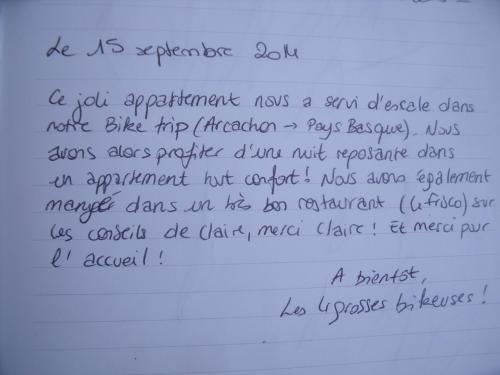 Le 15 septembre 2014
Ce joli appartement nous a servi d'escale dans
notre Bike trip (Arcachon → Pays Basque). Nous
avons alors profiter d'une nuit reposante dans
un appartement tout confort! Nous avons également
manger dans un très bon restaurant (le frisco) sur
les conseils de Claire, merci Claire! Et merci pour
l'accueil!
A bientôt,
Les 4 grosses bikeuses!